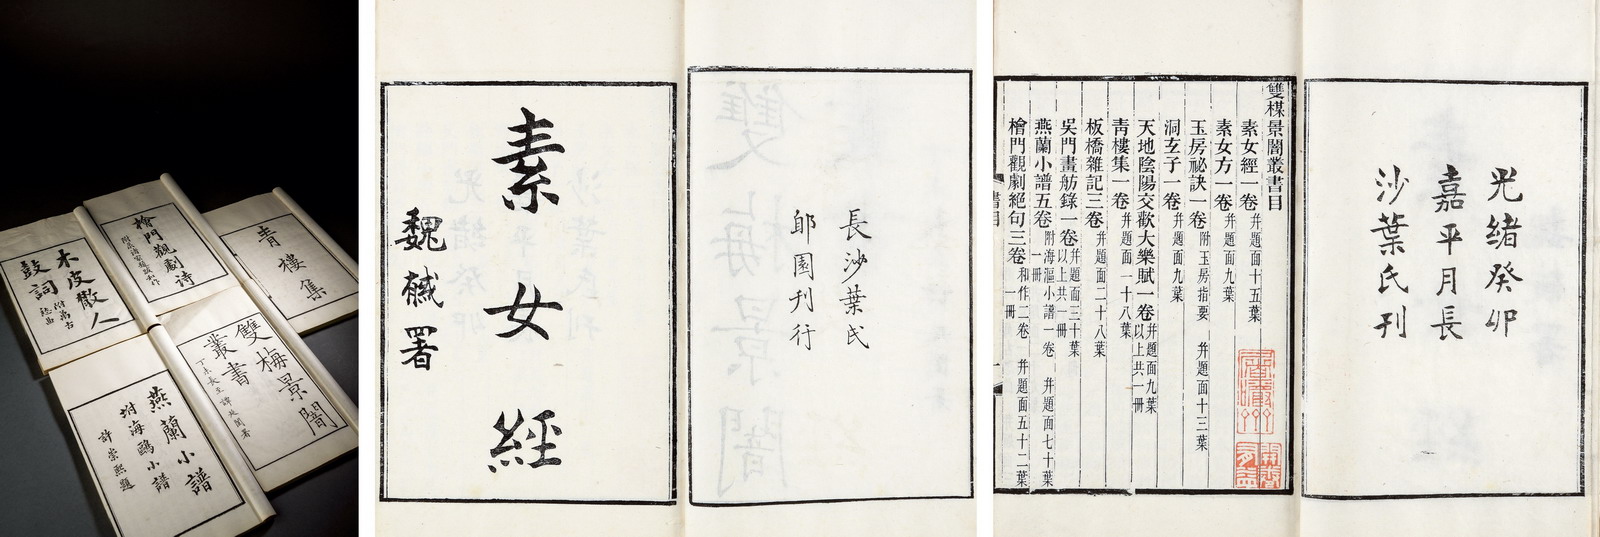 青樓集
檜門觀劇詩
木皮散人
鼓詞
附萬古愁曲
雙梅景闇
叢書
燕蘭小譜
坿海鷗小譜
許崇熙題
素女經
魏椷署
長沙葉氏
郋園刊行
雙楳景闇叢書目
素女經一卷 并題面十五葉
素女方一卷 并題面九葉
玉房祕訣一卷 附玉房指要 并題面十三葉
洞玄子一卷 并題面九葉
天地陰陽交歡大樂賦一卷 并題面九葉 以上共一冊
青樓集一卷 并題面一十八葉
板橋雜記三卷 并題面二十八葉
吳門畫舫錄一卷 并題面三十葉 以上共一冊
燕蘭小譜五卷 附海漚小譜一卷 并題面七十葉 一冊
檜門觀劇絕句三卷 和作二卷 并題面五十二葉 一冊
書目
一
光緒癸卯
嘉平月長
沙葉氏刊